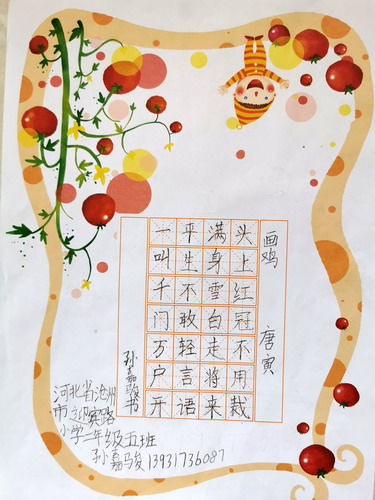 画鸡 唐寅
头上红冠不用裁
满身雪白走将来
平生不敢轻言语
一叫千门万户开
孙嘉骏书
河北省沧州
市迎宾路
小学二年级五班
孙嘉骏13931736087